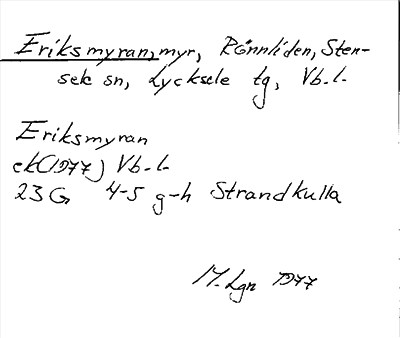 Eriksmyran, myr, Rönnliden, Sten-
sele sn, Lycksele tg, Vb. l.
Eriksmyran
ek(1977) Vb. l.
23 G 4-5 g-h Strandkulla
M. Lgn 1977